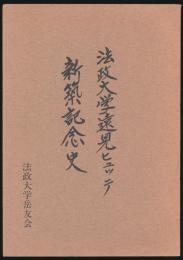 法政大学遠見ヒュッテ
新築記念史
法政大学岳友会